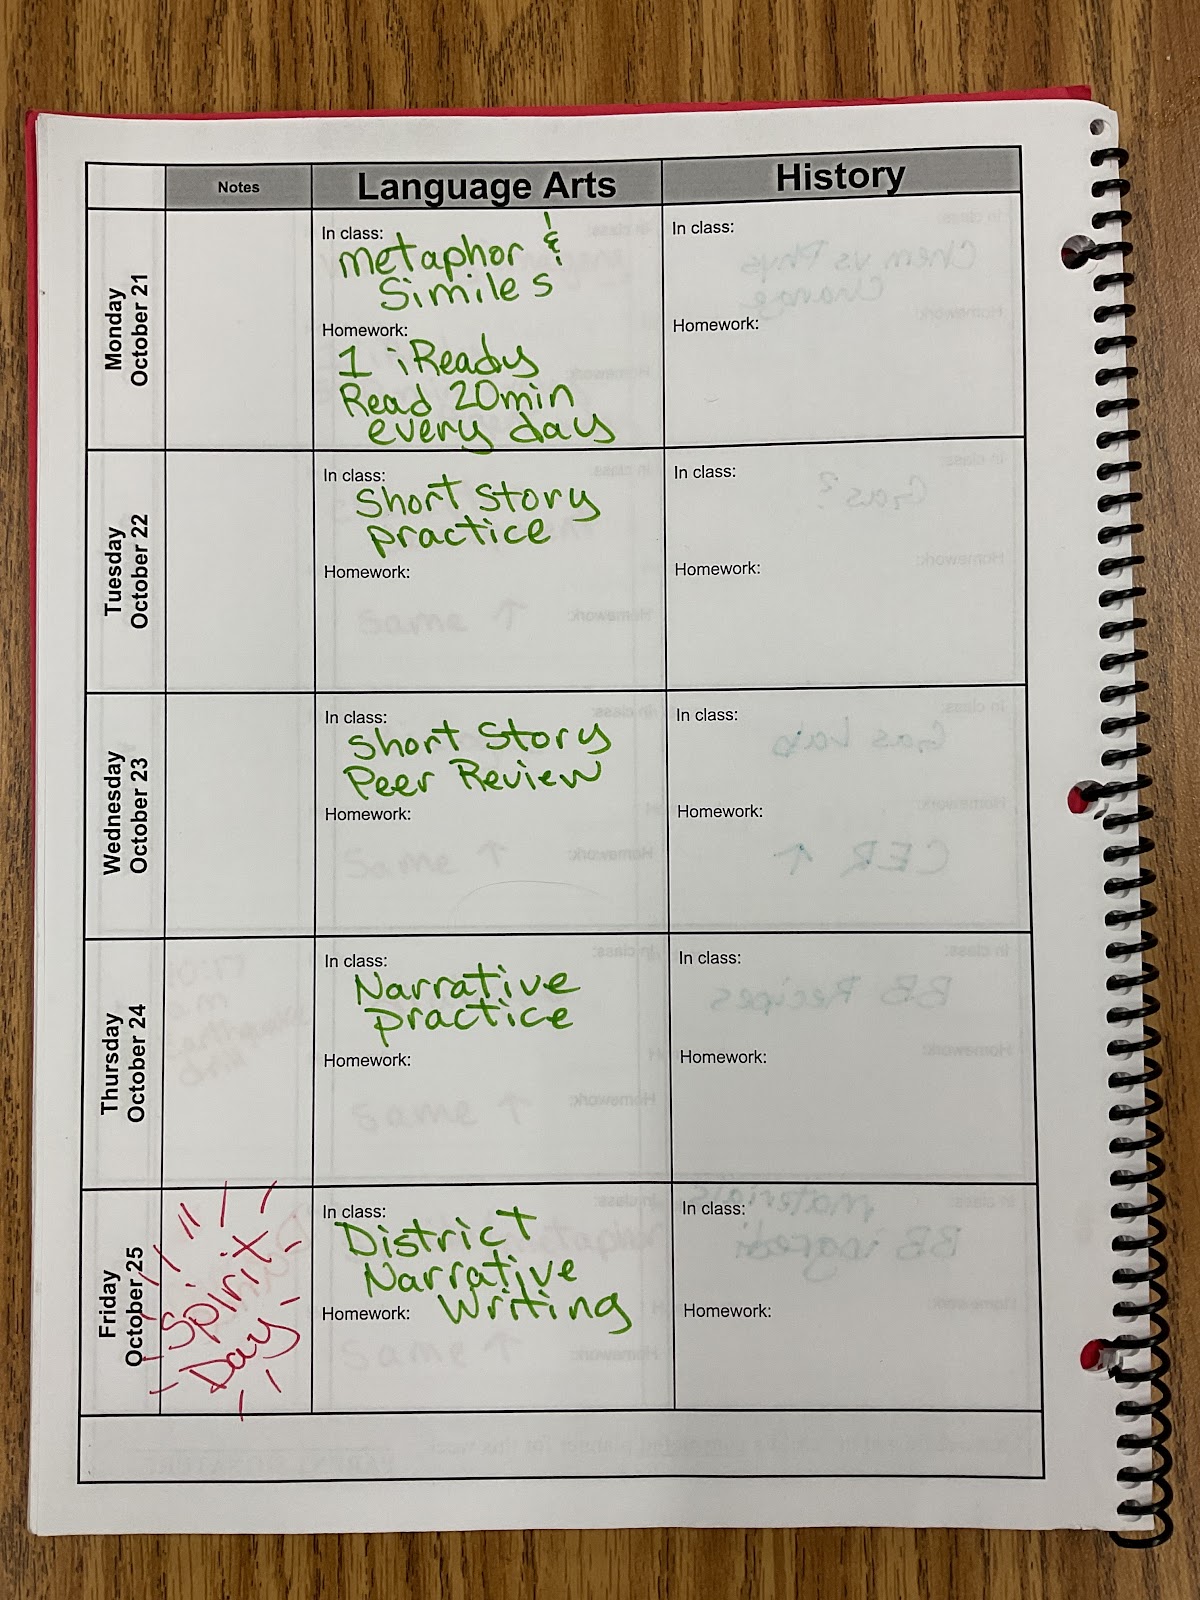 Notes
Language Arts
History
Monday
October 21
In class:
metaphor &
Similes
Homework:
1 iReady
Read 20min
every day
In class:
Homework:
Tuesday
October 22
In class:
Short Story
practice
Homework:
In class:
Homework:
Wednesday
October 23
In class:
Short Story
Peer Review
Homework:
In class:
Homework:
Thursday
October 24
In class:
Narrative
practice
Homework:
In class:
Homework:
Friday
October 25
Spirit
Day
In class:
District
Narrative
Homework: Writing
In class:
Homework: